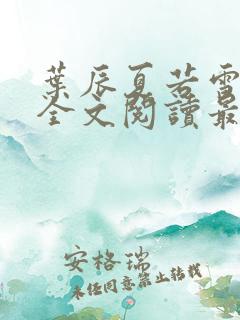 葉辰夏若雪
全文閱讀最
安格瑞
未经同意禁止转载